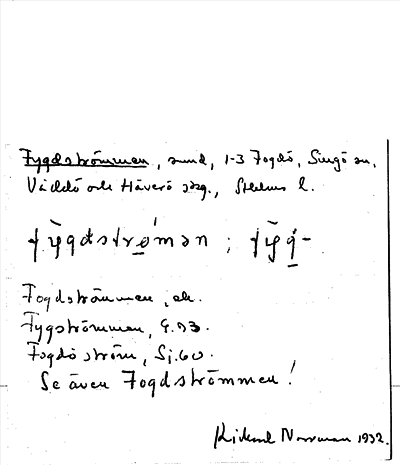 Fygdströmmen, sund, 1-3 Fogdö, Singö sn,
Väddö och Häverö skg., Sthlms l.
Fogdströmmen, ek.
Fygströmmen, G.93.
Fogdö ström, Sj.60.
Se även Fogdströmmen!
Rikard Norrman 1932.